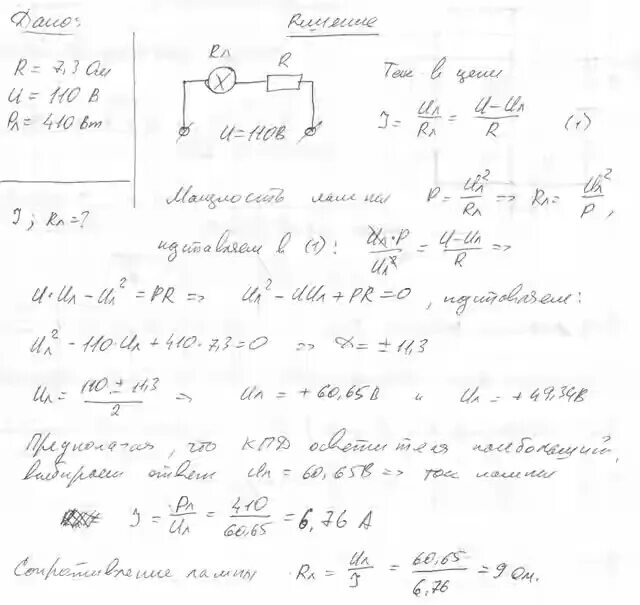 Дано: Решение
R = 7,3 Ом
U = 110 В
Pл = 410 Вт
J; Rл = ?
Rл R
U = 110В
Ток в цепи
J = Uл/Rл = (U − Uл)/R (1)
Мощность лампы P = Uл²/Rл => Rл = Uл²/P,
подставляем в (1): Uл·P/Uл² = (U − Uл)/R =>
U·Uл − Uл² = PR => Uл² − UUл + PR = 0, подставляем:
Uл² − 110·Uл + 410·7,3 = 0 => D = ± 11,3
Uл = (110 ± 11,3)/2 => Uл = + 60,65В и Uл = + 49,34В
Предполагая, что КПД осветителя наибольший,
выбираем ответ Uл = 60,65В => ток лампы
J = Pл/Uл = 410/60,65 = 6,76 А
Сопротивление лампы Rл = Uл/J = 60,65/6,76 = 9 Ом.